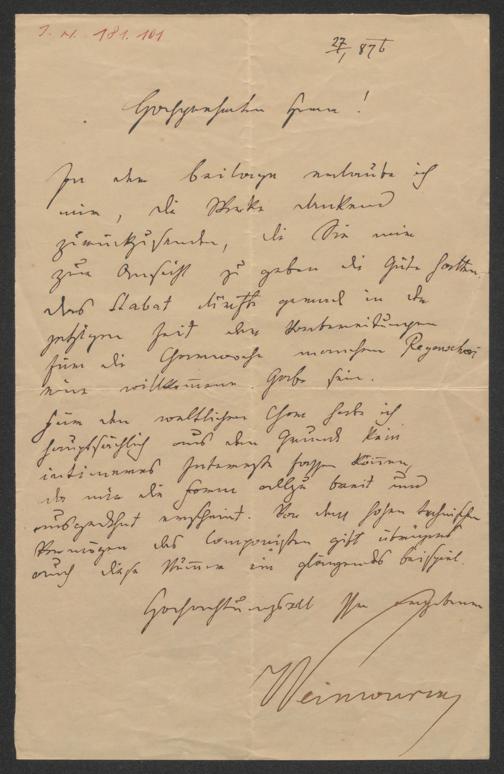 I. N. 181.101
27/1 876
Hochgeehrter Herr!
In der Beilage erlaube ich
mir, die Werke dankend
zurückzusenden, die Sie mir
zur Ansicht zu geben die Güte hatten.
Das Stabat dürfte gerade in der
jetzigen Zeit der Vorbereitungen
für die Charwoche manchem Regenschori
eine willkommene Gabe sein.
Für den weltlichen Chor habe ich
hauptsächlich aus dem Grund kein
intimeres Interesse fassen können,
da mir die Form allzu breit und
ausgedehnt erscheint. Von dem hohen technischen
Vermögen des Componisten gibt übrigens
auch diese Nummer ein glänzendes Beispiel.
Hochachtungsvoll Ihr ergebener
Weinwurm